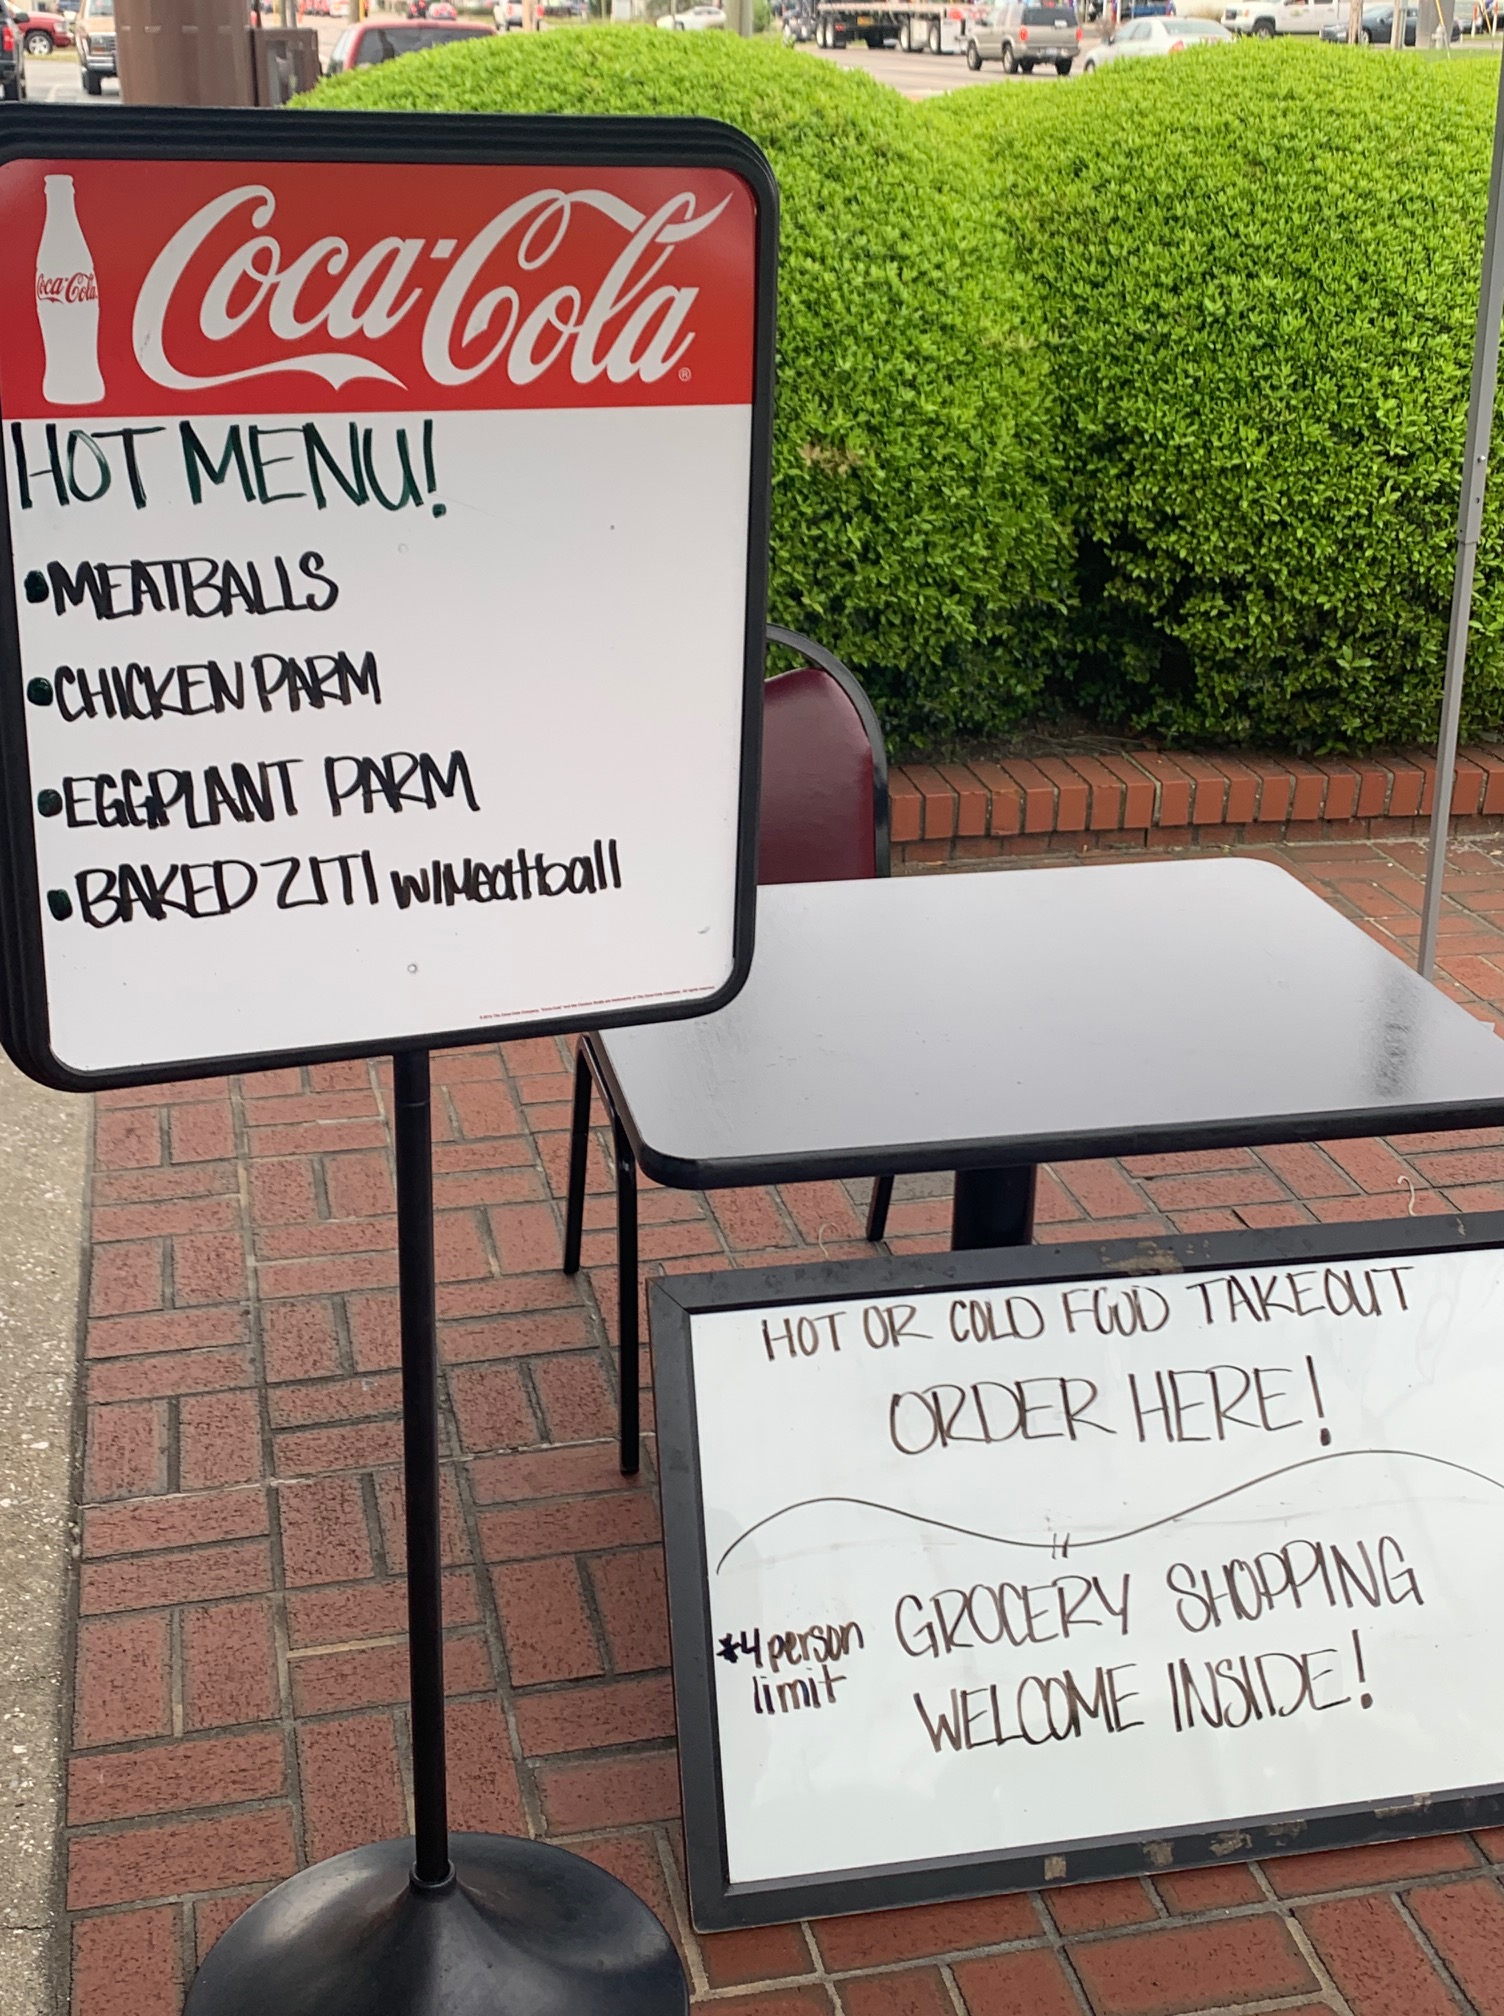 Coca-Cola
Coca-Cola ®
HOT MENU!
•MEATBALLS
•CHICKEN PARM
•EGGPLANT PARM
•BAKED ZITI w/Meatball
HOT OR COLD FOOD TAKEOUT
ORDER HERE!
GROCERY SHOPPING
*4 person
limit
WELCOME INSIDE!